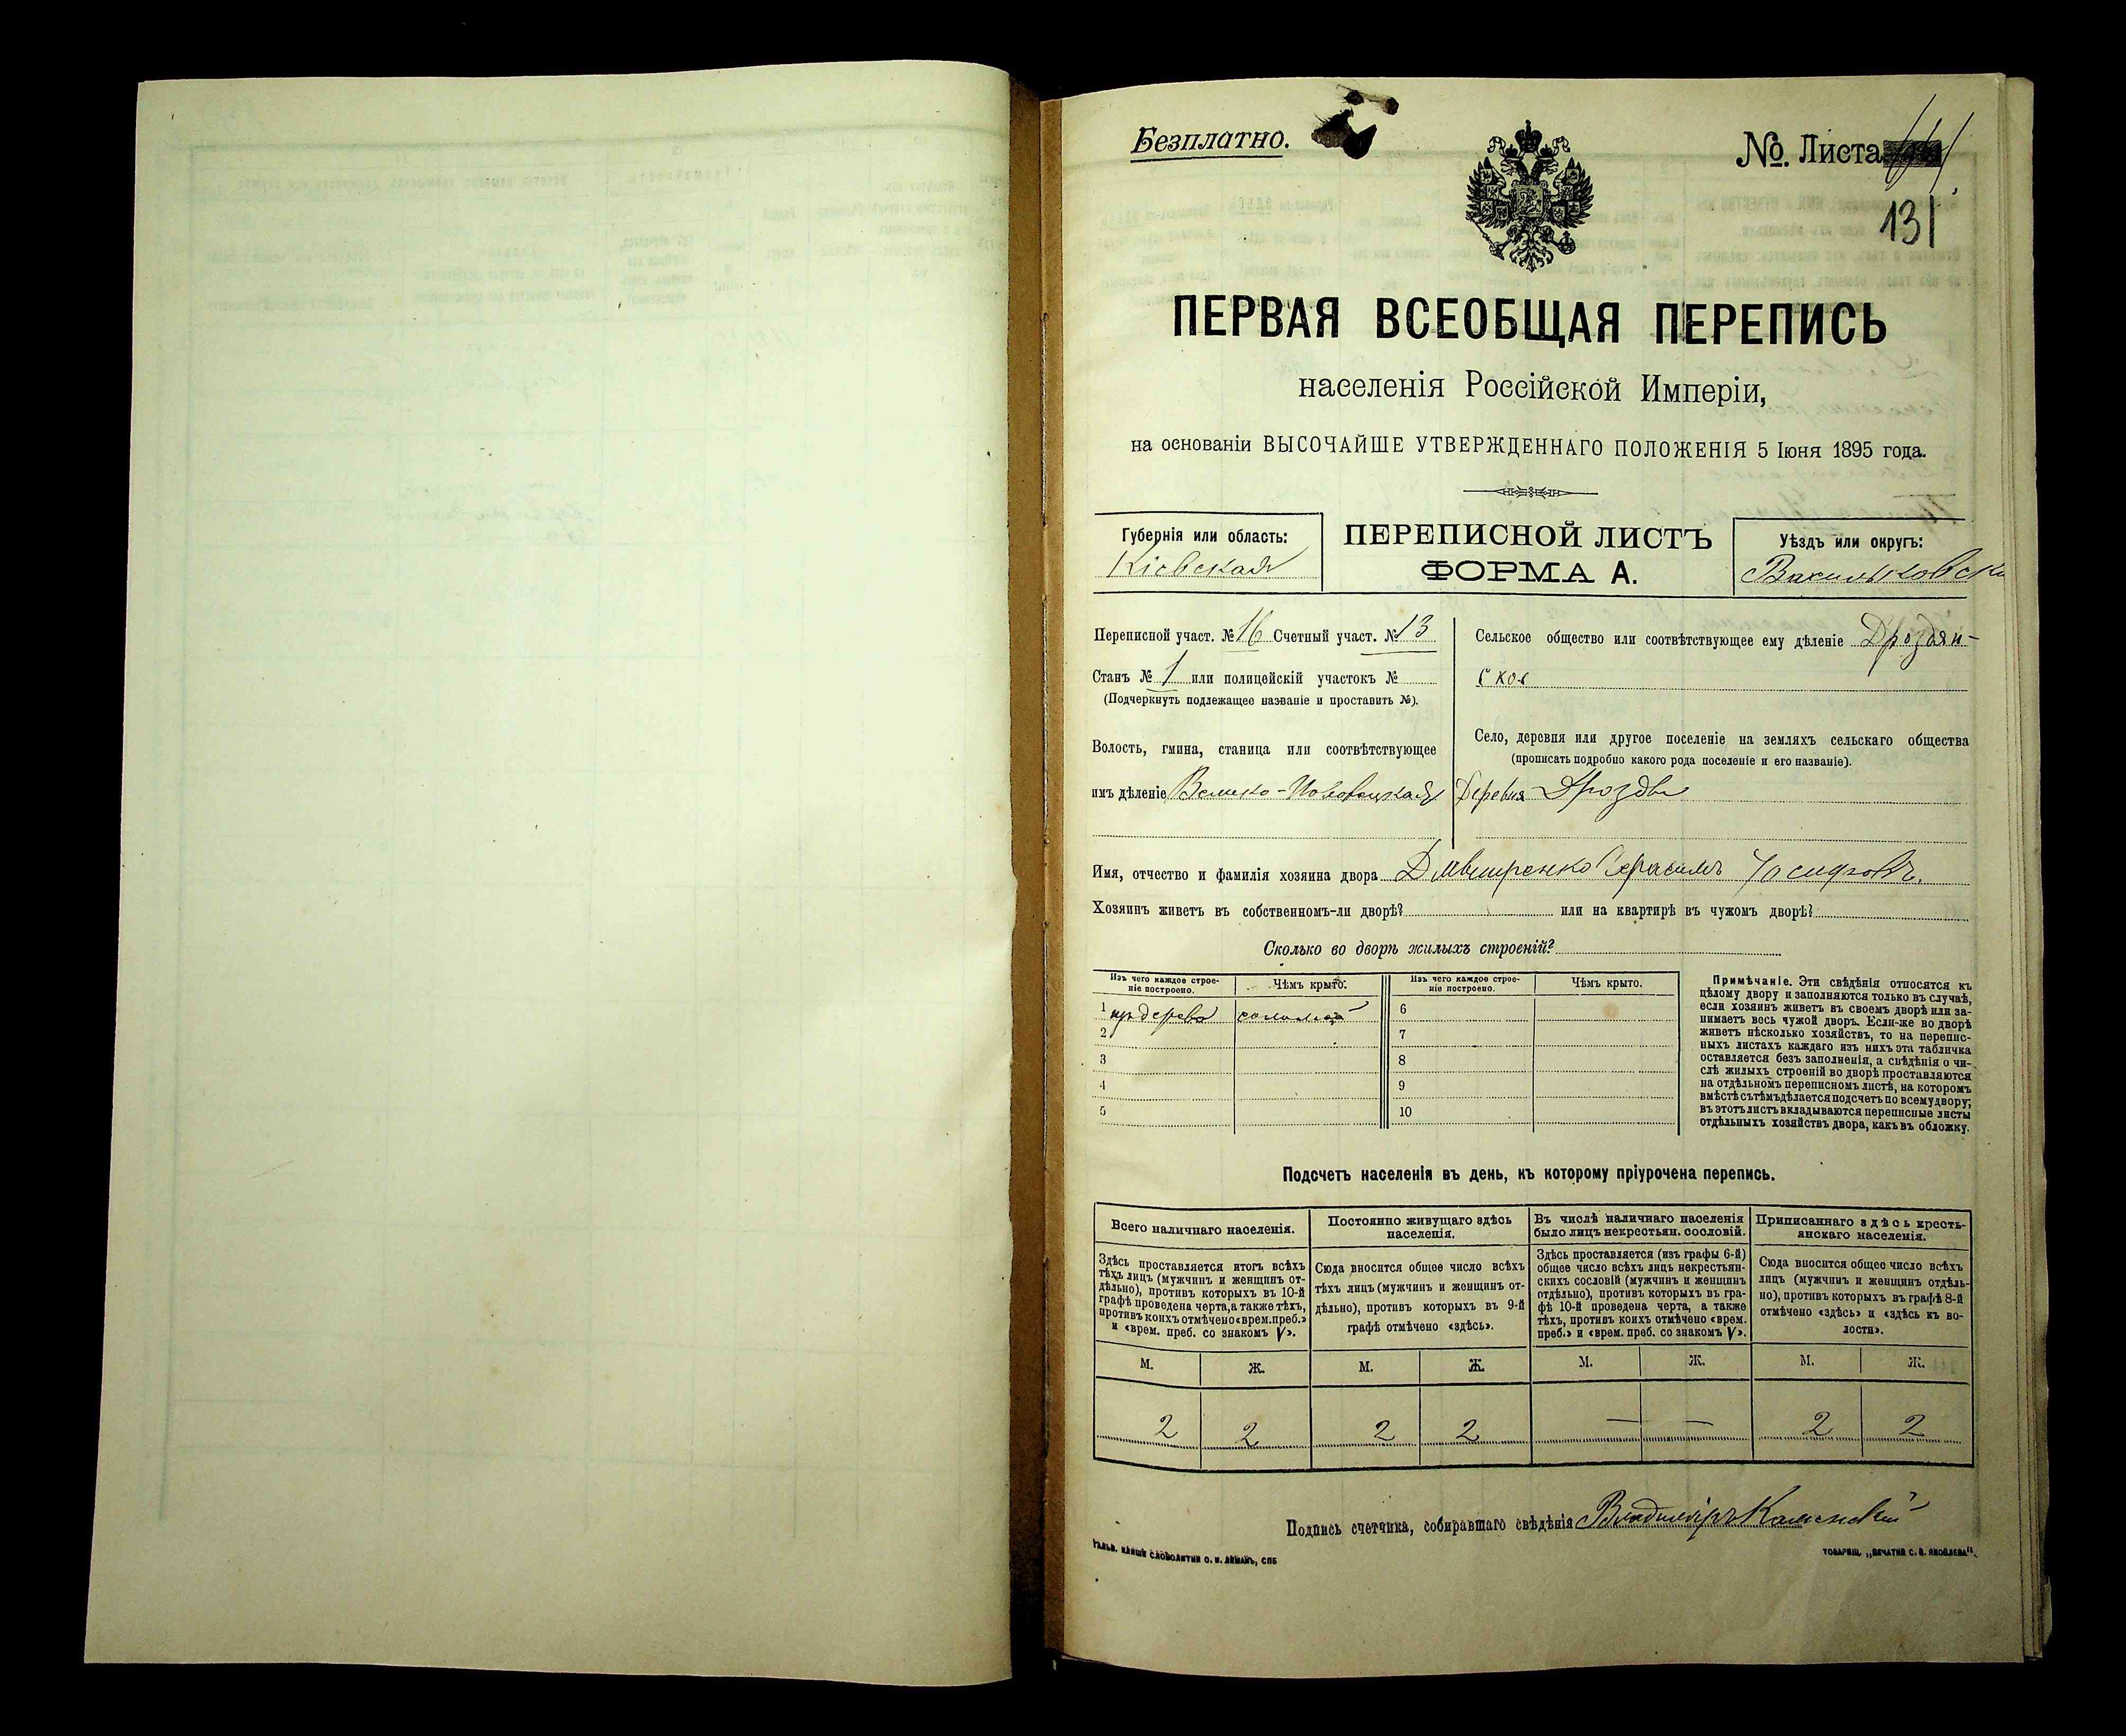 Безплатно.
№. Листа
131
ПЕРВАЯ ВСЕОБЩАЯ ПЕРЕПИСЬ
населенія Россійской Имперіи,
на основаніи ВЫСОЧАЙШЕ УТВЕРЖДЕННАГО ПОЛОЖЕНІЯ 5 Іюня 1895 года.
Губернія или область:
Кіевская
ПЕРЕПИСНОЙ ЛИСТЪ
ФОРМА А.
Уѣздъ или округъ:
Васильковскі
Переписной участ. № 16 Счетный участ. № 13
Станъ № 1 или полицейскій участокъ №
(Подчеркнуть подлежащее названіе и проставить №).
Волость, гмина, станица или соотвѣтствующее
имъ дѣленіе Велико-Половецкая
Сельское общество или соотвѣтствующее ему дѣленіе Дроздян-
ское
Село, деревня или другое поселеніе на земляхъ сельскаго общества
(прописать подробно какого рода поселеніе и его названіе).
Деревня Дрозды
Имя, отчество и фамилія хозяина двора Дмитренко Герасимъ Іосифовъ.
Хозяинъ живетъ въ собственномъ-ли дворѣ? или на квартирѣ въ чужомъ дворѣ?
Сколько во дворѣ жилыхъ строеній?
Изъ чего каждое строе-
ніе построено.
Чѣмъ крыто.
Изъ чего каждое строе-
ніе построено.
Чѣмъ крыто.
1 изъ дерева соломой 6
2 7
3 8
4 9
5 10
Примѣчаніе. Эти свѣдѣнія относятся къ
цѣлому двору и заполняются только въ случаѣ,
если хозяинъ живетъ въ своемъ дворѣ или за-
нимаетъ весь чужой дворъ. Если-же во дворѣ
живетъ нѣсколько хозяйствъ, то на перепис-
ныхъ листахъ каждаго изъ нихъ эта табличка
оставляется безъ заполненія, а свѣдѣнія о чи-
слѣ жилыхъ строеній во дворѣ проставляются
на отдѣльномъ переписномъ листѣ, на которомъ
вмѣстѣ съ тѣмъ дѣлается подсчетъ по всему двору;
въ этотъ листъ вкладываются переписные листы
отдѣльныхъ хозяйствъ двора, какъ въ обложку.
Подсчетъ населенія въ день, къ которому пріурочена перепись.
Всего наличнаго населенія.
Здѣсь проставляется итогъ всѣхъ
тѣхъ лицъ (мужчинъ и женщинъ от-
дѣльно), противъ которыхъ въ 10-й
графѣ проведена черта, а также тѣхъ,
противъ коихъ отмѣчено «врем. преб.»
и «врем. преб. со знакомъ V».
Постоянно живущаго здѣсь
населенія.
Сюда вносится общее число всѣхъ
тѣхъ лицъ (мужчинъ и женщинъ от-
дѣльно), противъ которыхъ въ 9-й
графѣ отмѣчено «здѣсь».
Въ числѣ наличнаго населенія
было лицъ некрестьян. сословій.
Здѣсь проставляется (изъ графы 6-й)
общее число всѣхъ лицъ некрестьян-
скихъ сословій (мужчинъ и женщинъ
отдѣльно), противъ которыхъ въ гра-
фѣ 10-й проведена черта, а также
тѣхъ, противъ коихъ отмѣчено «врем.
преб.» и «врем. преб. со знакомъ V».
Приписаннаго здѣсь кресть-
янскаго населенія.
Сюда вносится общее число всѣхъ
лицъ (мужчинъ и женщинъ отдѣль-
но), противъ которыхъ въ графѣ 8-й
отмѣчено «здѣсь» и «здѣсь къ во-
лости».
М. Ж. М. Ж. М. Ж. М. Ж.
2 2 2 2 — — 2 2
Подпись счетчика, собиравшаго свѣдѣнія Владиміръ
ГАЛЬВ. КЛИШЕ СЛОВОЛИТНИ О. И. ЛЕМАНЪ, СПБ
ТОВАРИЩ. „ПЕЧАТНЯ С. П. ЯКОВЛЕВА".